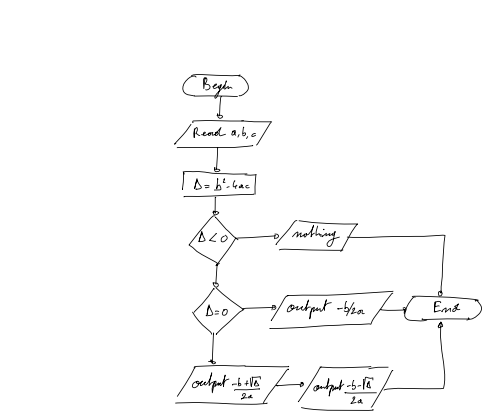 Begin
Read a,b,c
Δ = b²-4ac
Δ<0
nothing
Δ=0
output -b/2a
End
output -b+√Δ/2a
output -b-√Δ/2a